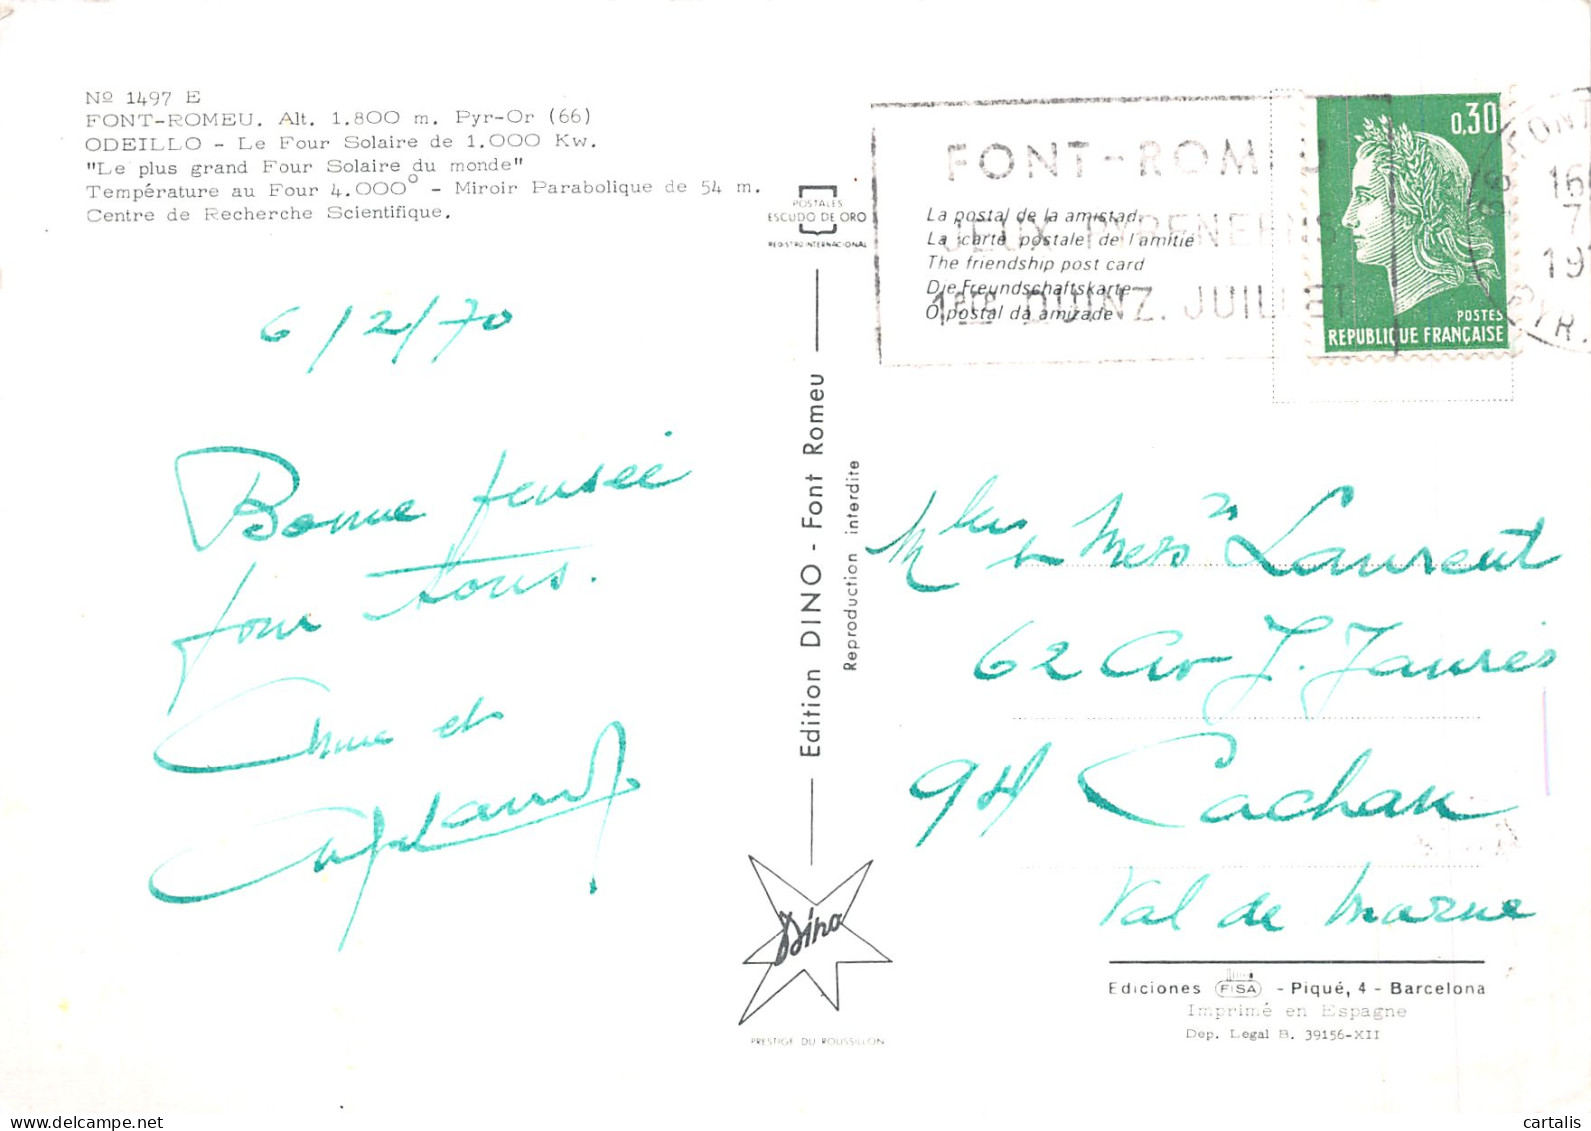 Nº 1497 E
FONT-ROMEU. Alt. 1.800 m. Pyr-Or (66)
ODEILLO - Le Four Solaire de 1.000 Kw.
"Le plus grand Four Solaire du monde"
Température au Four 4.000° - Miroir Parabolique de 54 m.
Centre de Recherche Scientifique.
6/2/70
Bonne pensée
pour tous.
Anne et
POSTALES
ESCUDO DE ORO
REGISTRO INTERNACIONAL
Edition DINO - Font Romeu
Reproduction interdite
Dino
PRESTIGE DU ROUSSILLON
FONT-ROMEU
JEUX PYRENEENS
1ère QUINZ. JUILLET
La postal de la amistad.
La carte postale de l'amitié
The friendship post card
Die Freundschaftskarte
O postal da amizade
0,30
POSTES
REPUBLIQUE FRANÇAISE
66 FONT
16
7
19
PYR.
Laurent
62 Av J. Jaurès
94 Cachan
Val de Marne
Ediciones FISA - Piqué, 4 - Barcelona
Imprimé en Espagne
Dep. Legal B. 39156-XII
cartalis
delcampe.net